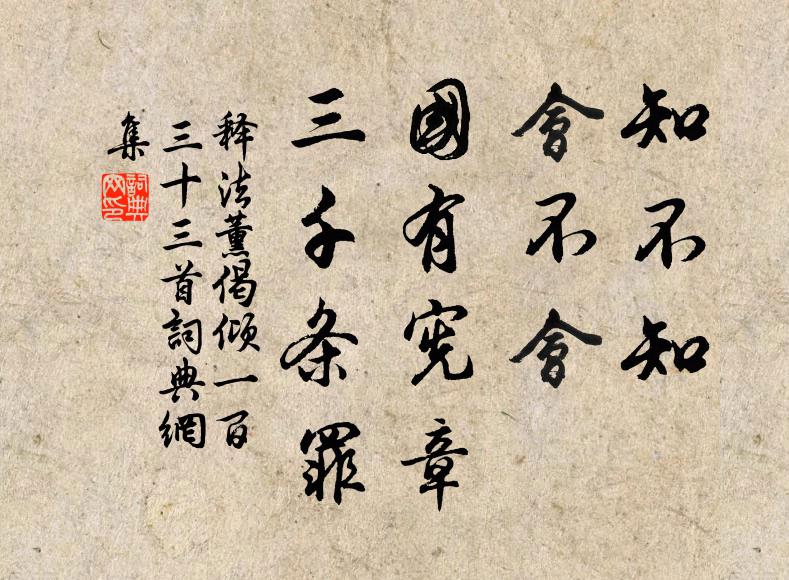 知不知
會不會
國有宪章
三千条罪
释法薰偈倾一百
三十三首詞典網
集
詞典网印